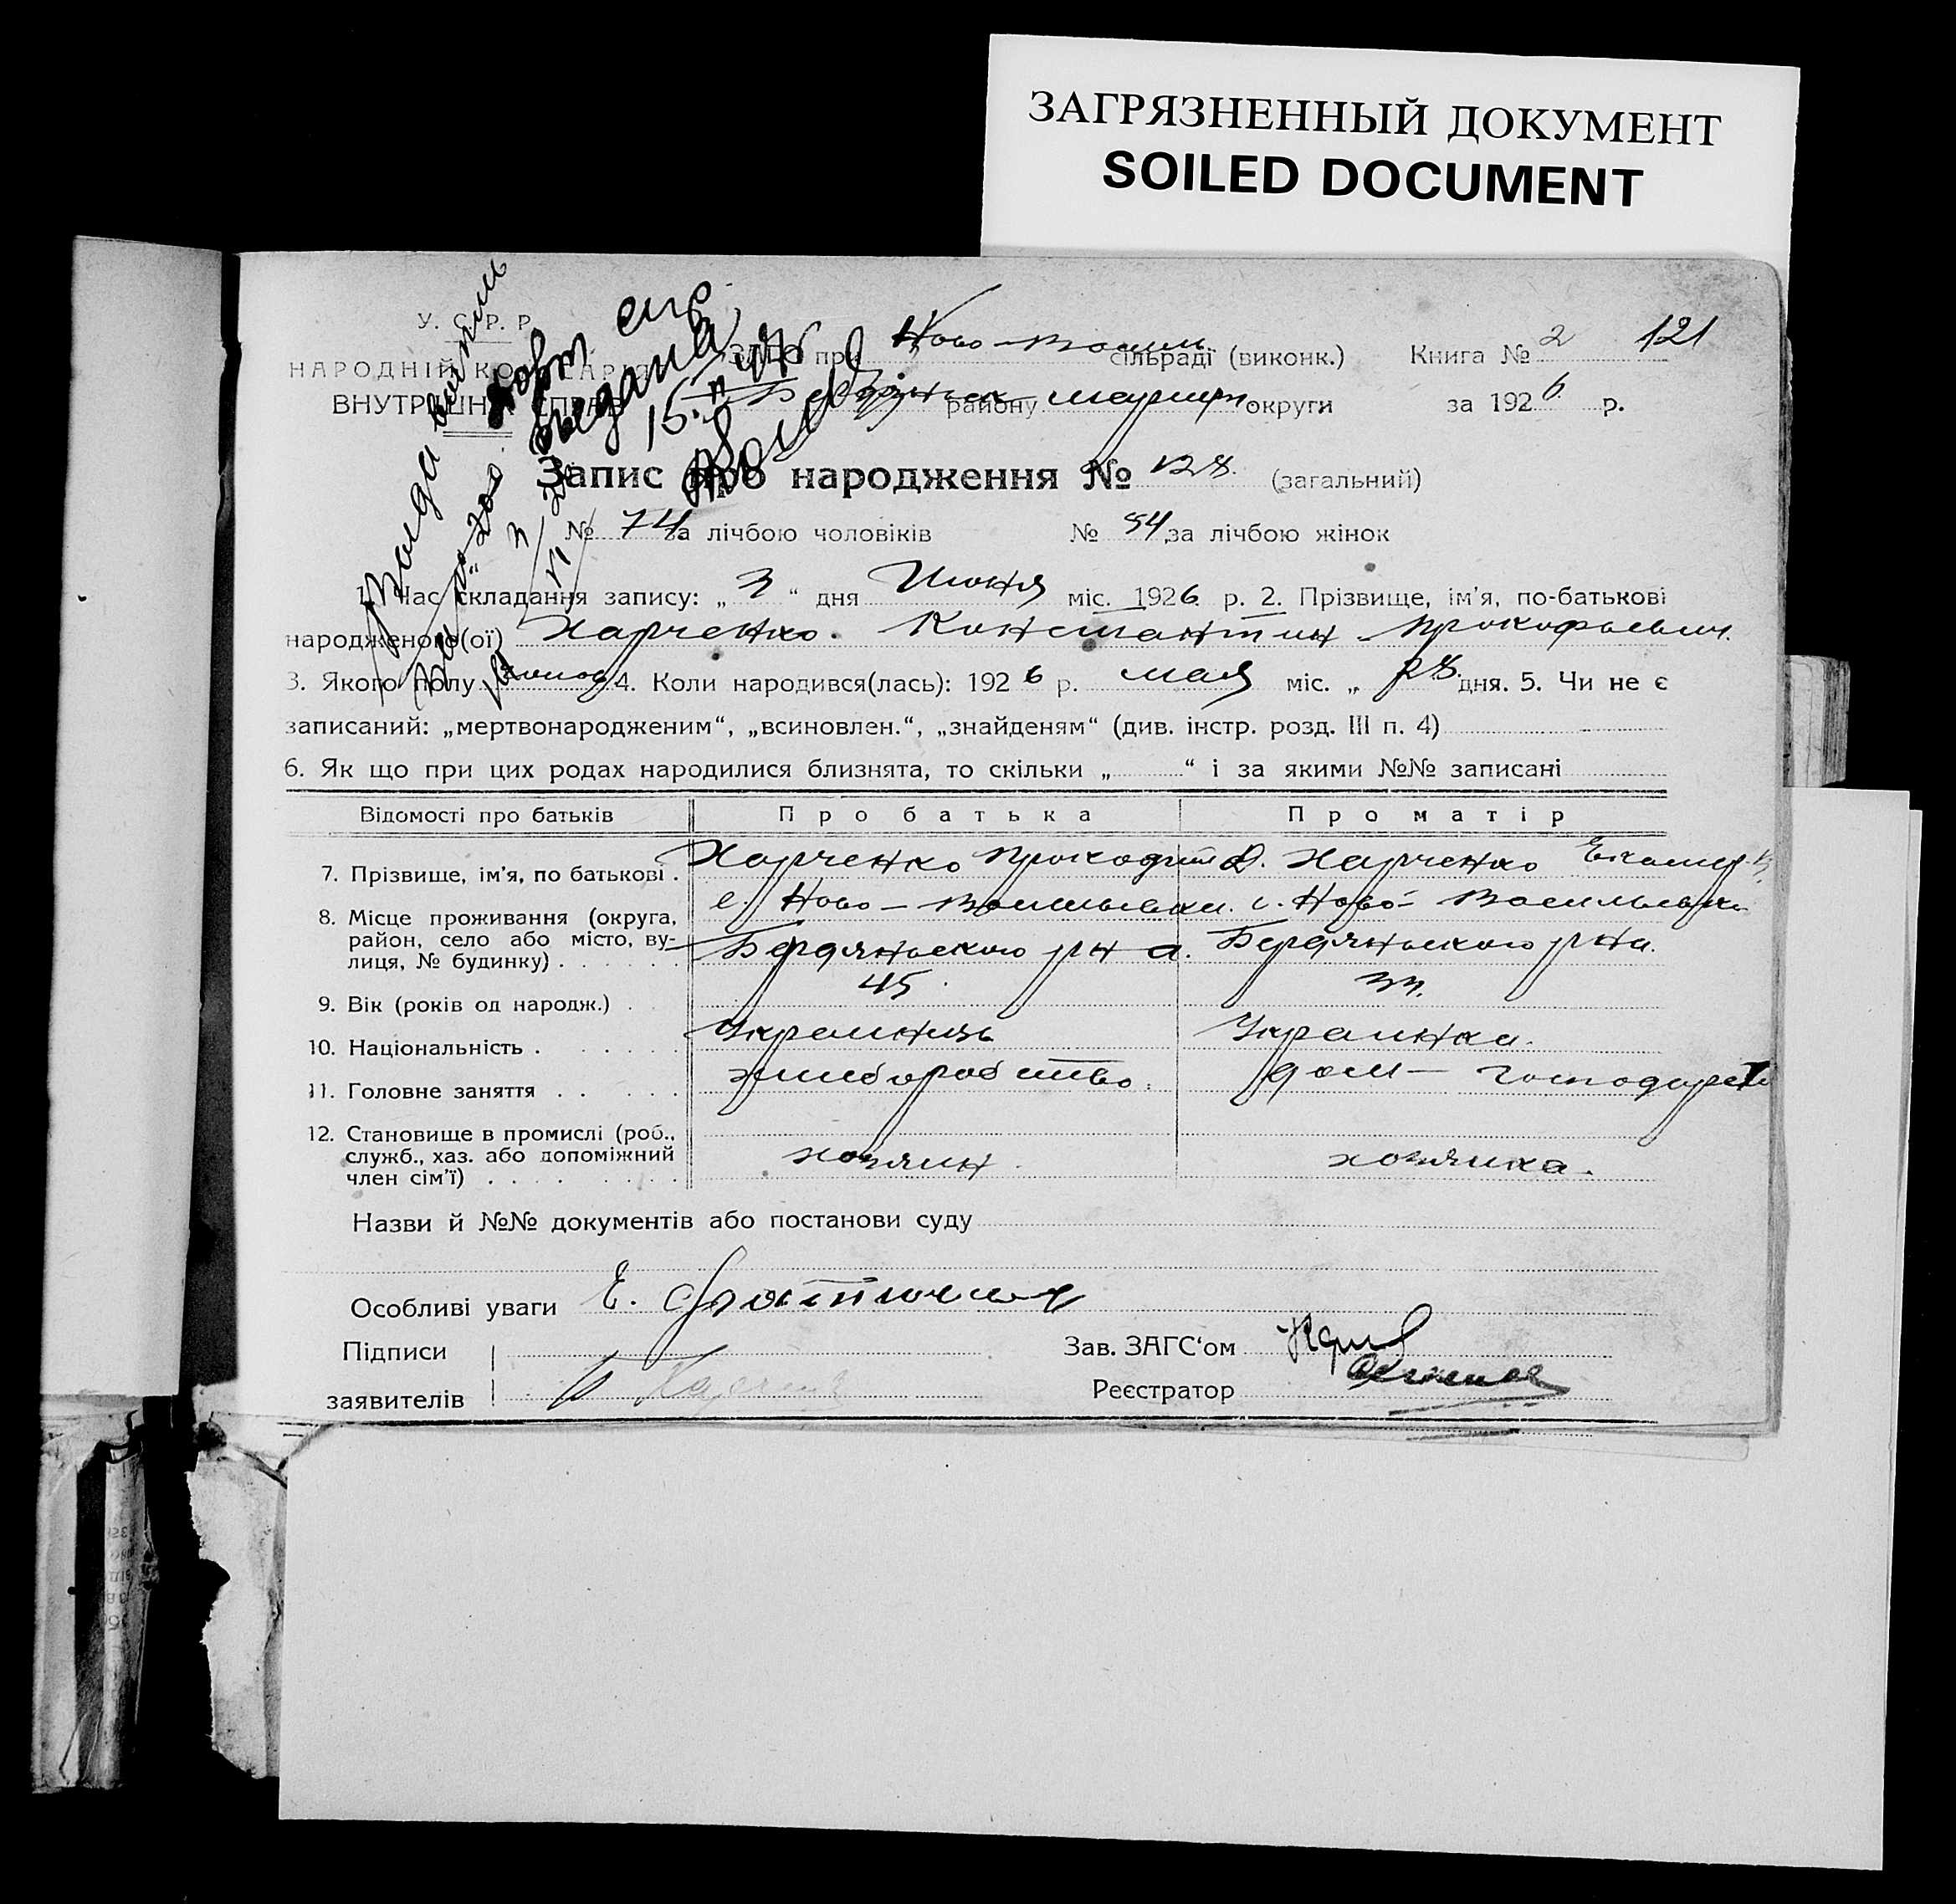 ЗАГРЯЗНЕННЫЙ ДОКУМЕНТ
SOILED DOCUMENT
У. С. Р. Р.
НАРОДНІЙ КОМІСАРІЯТ
ВНУТРІШНІХ СПРАВ
ЗАГС при Ново-Васил. сільраді (виконк.) Книга № 2 121
Бердянськ району округи за 1926 р.
Видана
Запис про народження № 128 (загальний)
№ 74 за лічбою чоловіків № 54 за лічбою жінок
1. Час складання запису: „3“ дня Июня міс. 1926 р. 2. Прізвище, ім'я, по-батькові
народженого(ої) Харченко. Константин Прокофьевич.
3. Якого полу 4. Коли народився(лась): 1926 р. мая міс. „28 дня. 5. Чи не є
записаний: „мертвонародженим“, „всиновлен.“, „знайденям“ (див. інстр. розд. III п. 4)
6. Як що при цих родах народилися близнята, то скільки „ “ і за якими №№ записані
Відомості про батьків Про батька Про матір
7. Прізвище, ім'я, по батькові . Харченко Харченко
8. Місце проживання (округа, с. Ново-Васильевки. с. Ново-Васильевки
район, село або місто, ву- Бердянського р-на. Бердянського р-на.
лиця, № будинку) . . . . . .
9. Вік (років од народж.) . 45. 33.
10. Національність . . . . . . Українець Українка.
11. Головне заняття . . . . . хліборобство. дом-господарств
12. Становище в промислі (роб.,
служб., хаз. або допоміжний хозяин. хозяйка.
член сім'ї) . . . . . . . .
Назви й №№ документів або постанови суду
Особливі уваги
Підписи Зав. ЗАГС'ом
заявителів Реєстратор